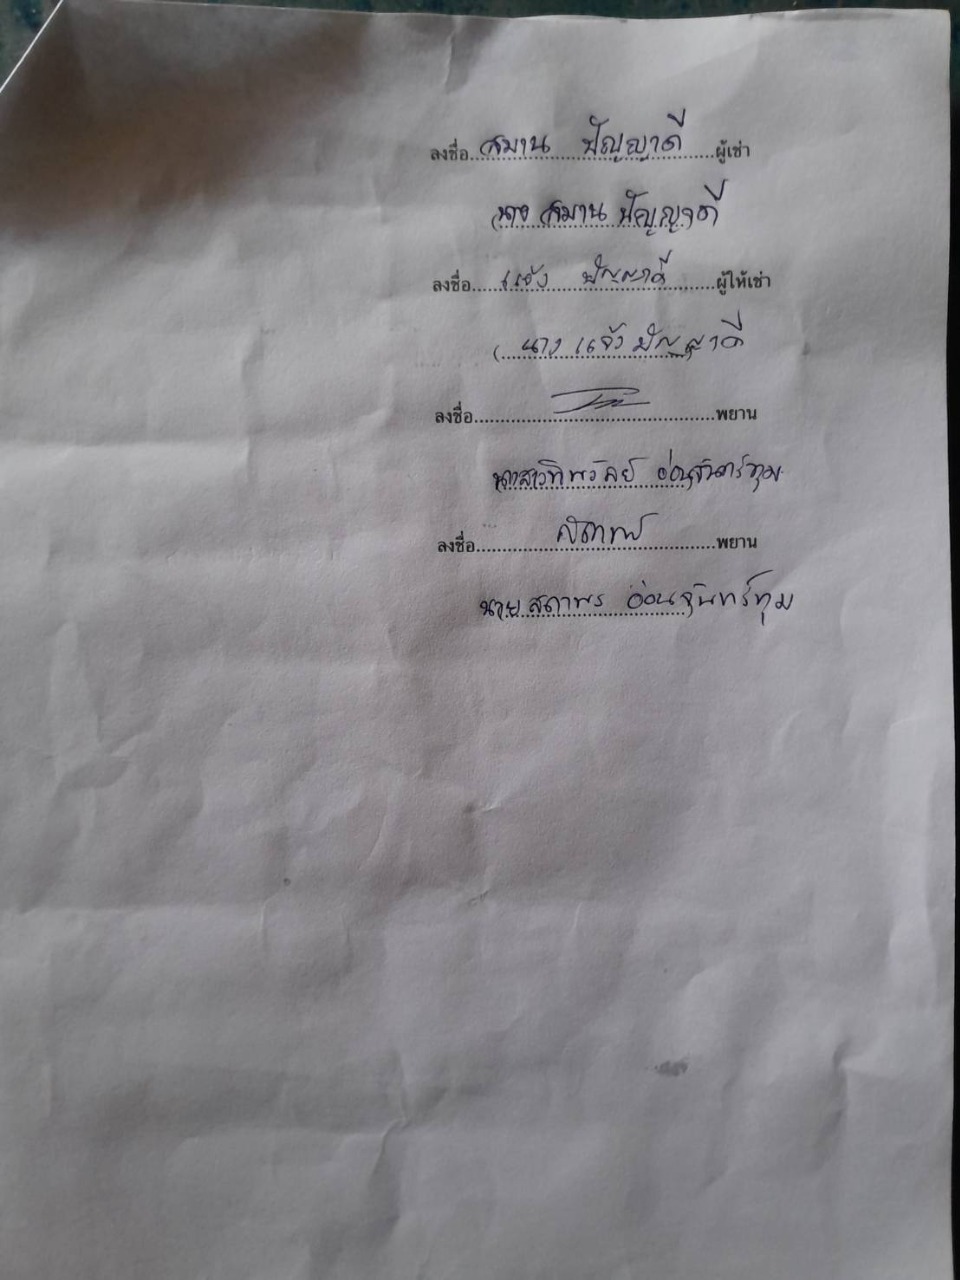 ลงชื่อ สมาน ปัญญาดี ผู้เช่า
(นาง สมาน ปัญญาดี
ลงชื่อ แจ้ง ปัญญาดี ผู้ให้เช่า
(นาง แจ้ง ปัญญาดี
ลงชื่อ พยาน
นางสาวทิพวัลย์ อ่อนจันทร์ทุม
ลงชื่อ สถาพร พยาน
นาย สถาพร อ่อนจันทร์ทุม